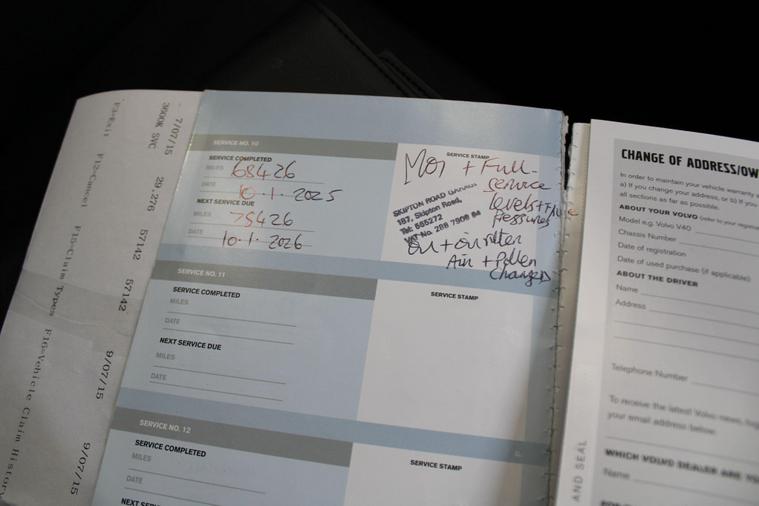 F3=Exit F12=Cancel F15=Claim Types F16=Vehicle Claim History
3900K SVC
7/07/15 29,276 57142 57142 9/07/15 9/07/15
SERVICE NO. 10
SERVICE COMPLETED
MILES 68426
DATE 10.1.2025
NEXT SERVICE DUE
78426
10.1.2026
SERVICE STAMP
MOT + Full
service
levels + Tyre
Pressures
SKIPTON ROAD GARAGE
187, Skipton Road,
Tel: 565272
VAT No. 288 7908 84
Oil + oil filter
Air + Pollen
Changed
SERVICE NO. 11
SERVICE COMPLETED
MILES
DATE
NEXT SERVICE DUE
MILES
DATE
SERVICE STAMP
SERVICE NO. 12
SERVICE COMPLETED
MILES
DATE
NEXT SERVICE
SERVICE STAMP
CHANGE OF ADDRESS/OW
In order to maintain your vehicle warranty
a) If you change your address, or b) If you
all sections as far as possible.
ABOUT YOUR VOLVO (refer to your
Model e.g. Volvo V40
Chassis Number
Date of registration
Date of used purchase (if applicable)
ABOUT THE DRIVER
Name
Address
Telephone Number
To receive the latest Volvo news,
your email address below:
WHICH VOLVO DEALER ARE
Name
AND SEAL